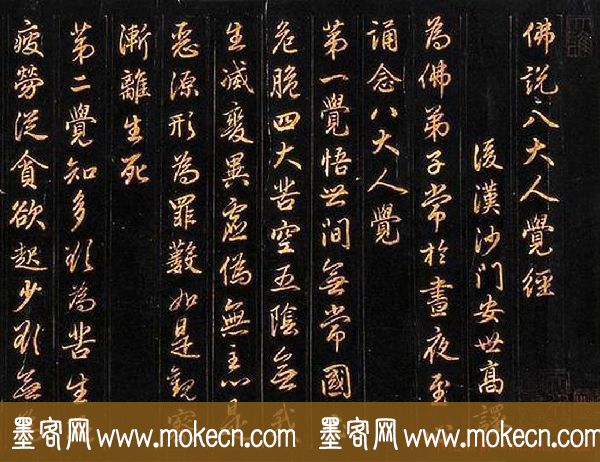 佛説八大人覺經
後漢沙门安世高譯
為佛弟子常於晝夜至
誦念八大人覺
第一覺悟世间無常國
危脆四大苦空五陰無我
生滅變異虛偽無主心是
惡源形為罪藪如是觀察
漸離生死
第二覺知多欲為苦生
疲勞從貪欲起少欲無
墨客网 www.mokecn.com 墨客网 www.mokecn.com